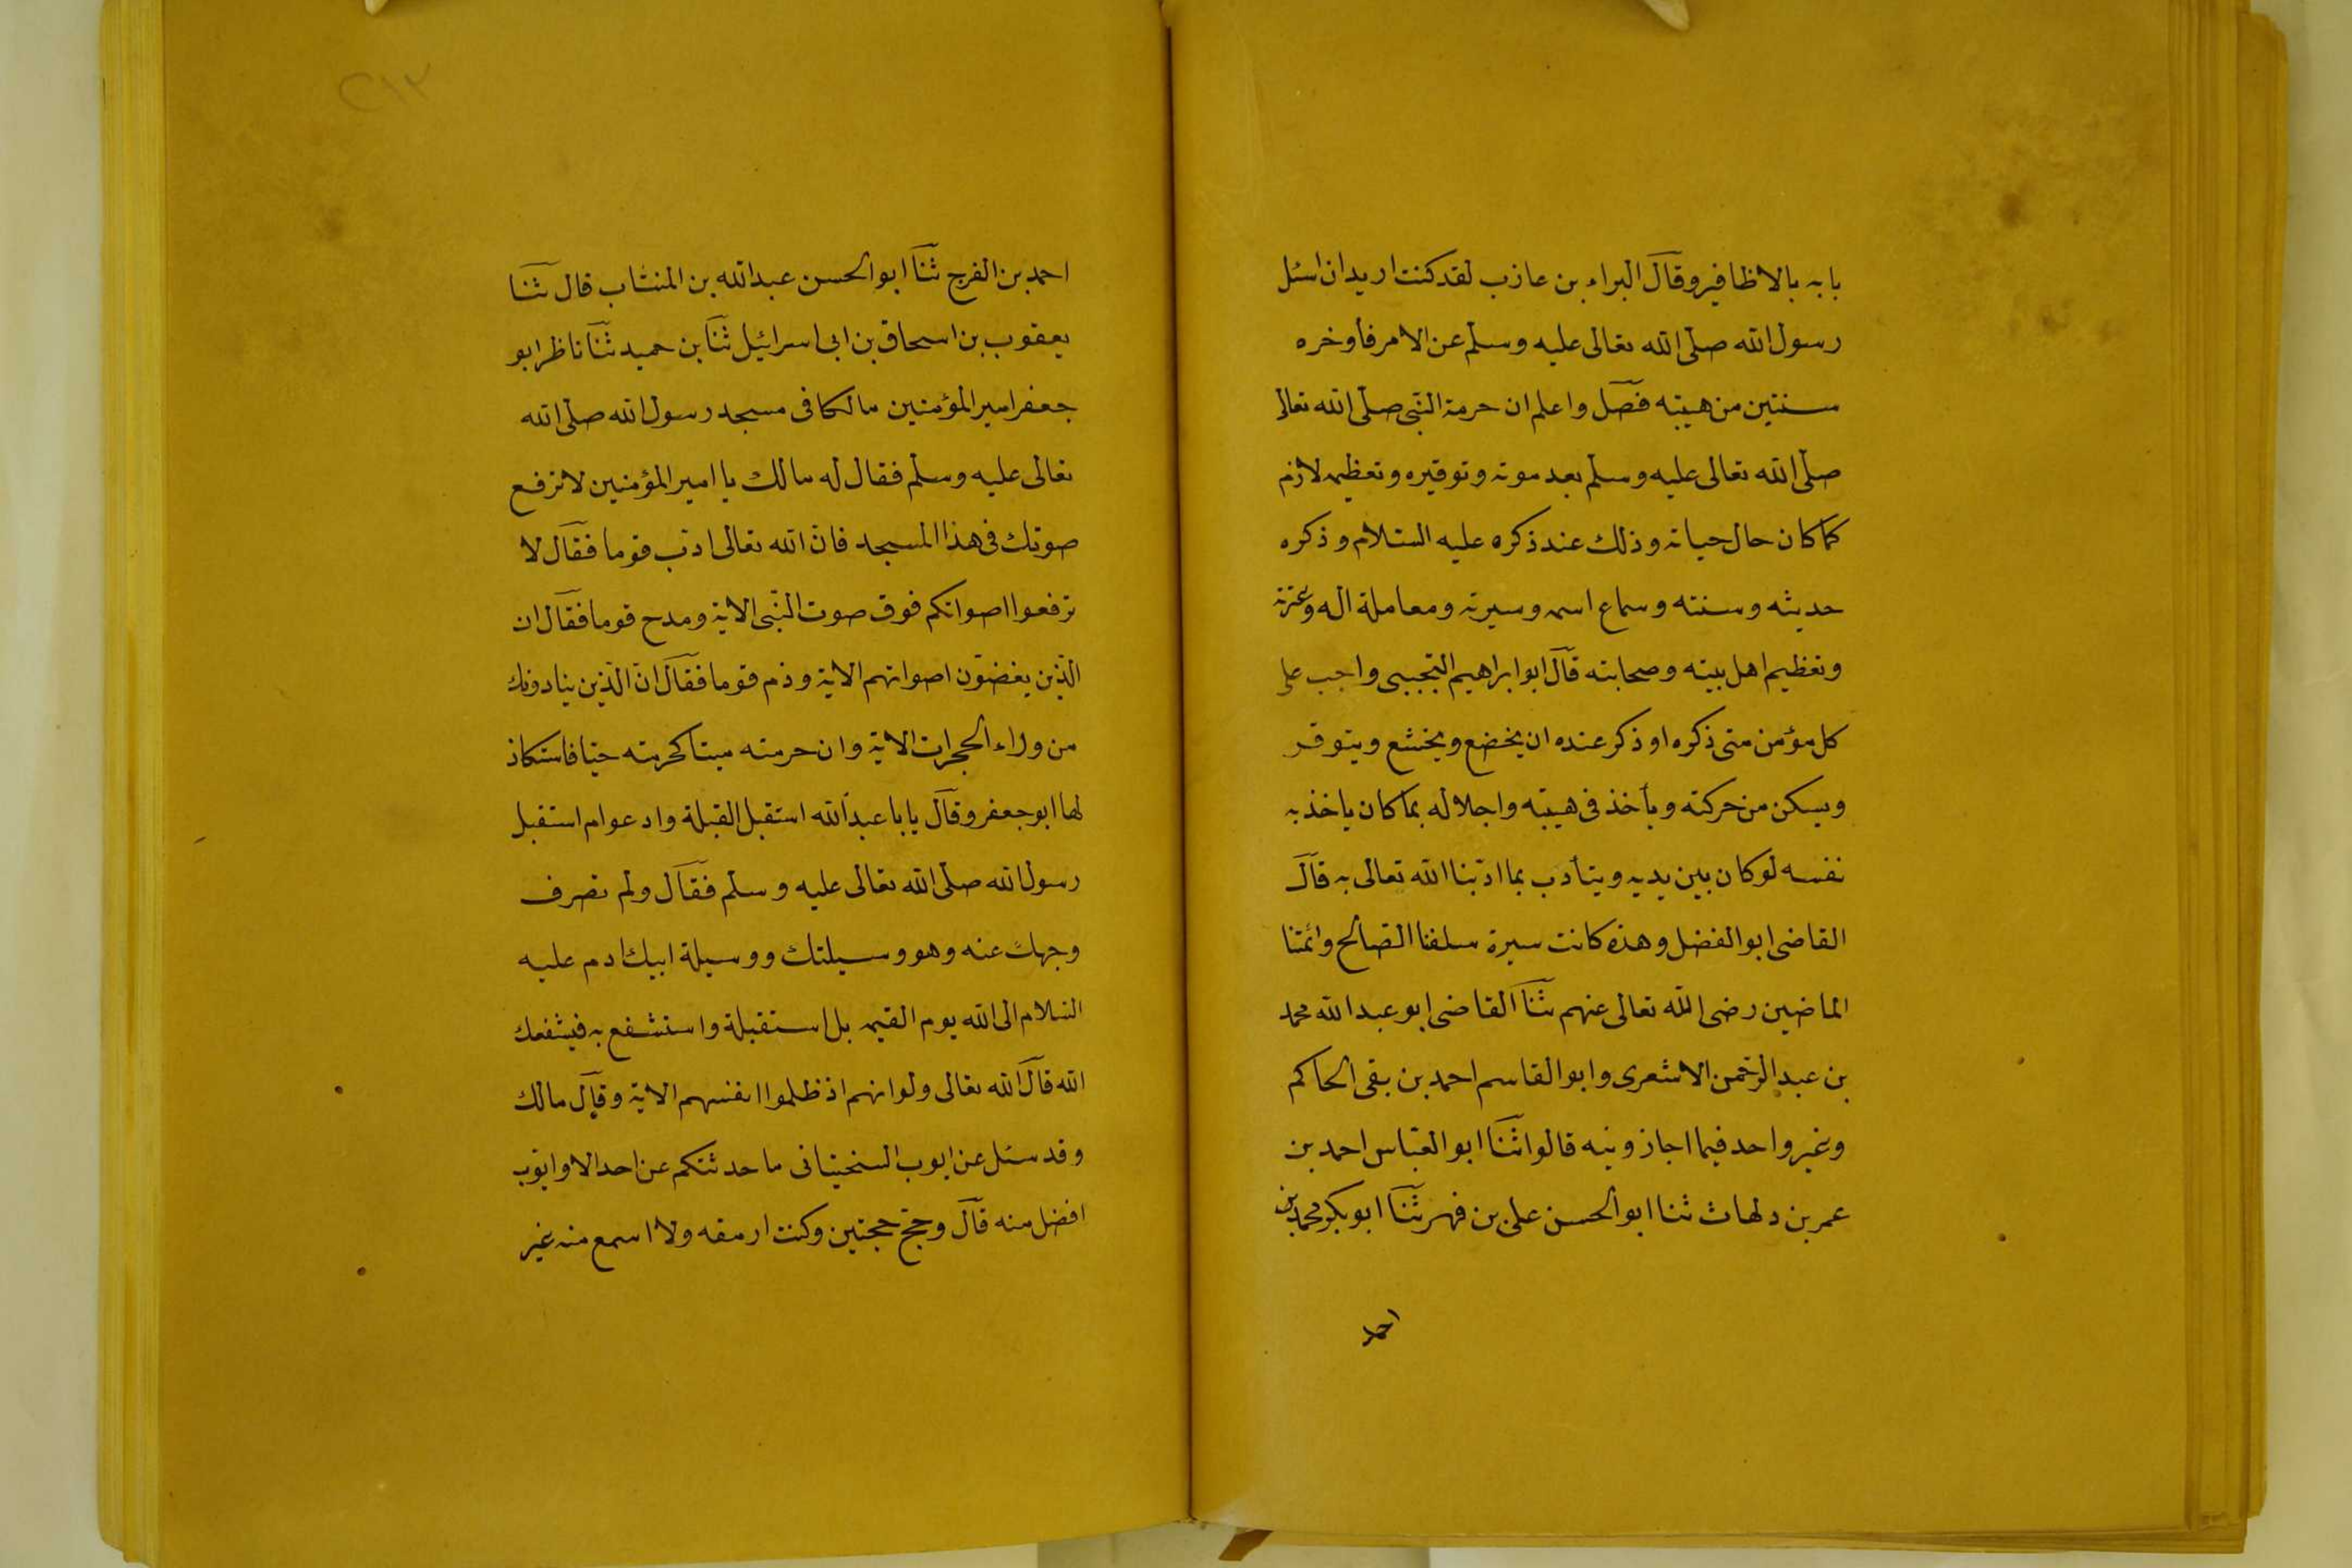 بابه بالاظافير وقال البراء بن عازب لقد كنت اريد ان اسئل
رسول الله صلى الله تعالى عليه وسلم عن الامر فأوخره
سنتين من هيبته فصل واعلم ان حرمة النبى صلى الله تعالى
صلى الله تعالى عليه وسلم بعد موته وتوقيره وتعظيمه لازم
كما كان حال حياته وذلك عند ذكره عليه السلام وذكره
حديثه وسنته وسماع اسمه وسيرته ومعاملة اله وعترته
وتعظيم اهل بيته وصحابته قال ابو ابراهيم التجيبى واجب على
كل مؤمن متى ذكره او ذكر عنده ان يخضع ويخشع ويتوقر
ويسكن من حركته ويأخذ فى هيبته واجلاله بما كان ياخذ به
نفسه لو كان بين يديه ويتأدب بما ادبنا الله تعالى به قال
القاضى ابو الفضل وهذه كانت سيرة سلفنا الصالح وائمتنا
الماضين رضى الله تعالى عنهم ثنا القاضى ابو عبد الله محمد
بن عبد الرحمن الاشعرى وابو القاسم احمد بن بقى الحاكم
وغير واحد فيما اجازونيه قالوا ثنا ابو العباس احمد بن
عمر بن دلهاث ثنا ابو الحسن على بن فهر ثنا ابو بكر محمد بن
احمد
٢١٢
احمد بن الفرج ثنا ابو الحسن عبد الله بن المنتاب قال ثنا
يعقوب بن اسحاق بن ابى اسرائيل ثنا بن حميد ثنا ناظر ابو
جعفر امير المؤمنين مالكا فى مسجد رسول الله صلى الله
تعالى عليه وسلم فقال له مالك يا امير المؤمنين لا ترفع
صوتك فى هذا المسجد فان الله تعالى ادب قوما فقال لا
ترفعوا اصواتكم فوق صوت النبى الاية ومدح قوما فقال ان
الذين يغضون اصواتهم الاية وذم قوما فقال ان الذين ينادونك
من وراء الحجرات الاية وان حرمته ميتا كحرمته حيا فاستكاذ
لها ابو جعفر وقال يابا عبد الله استقبل القبلة وادعوا م استقبل
رسول الله صلى الله تعالى عليه وسلم فقال ولم تصرف
وجهك عنه وهو وسيلتك ووسيلة ابيك ادم عليه
السلام الى الله يوم القيمه بل استقبلة واستشفع به فيشفعك
الله قال الله تعالى ولو انهم اذ ظلموا انفسهم الاية وقال مالك
وقد سئل عن ايوب السختيانى ما حدثتكم عن احد الا وايوب
افضل منه قال وحج حجتين وكنت ارمقه ولا اسمع منه غير